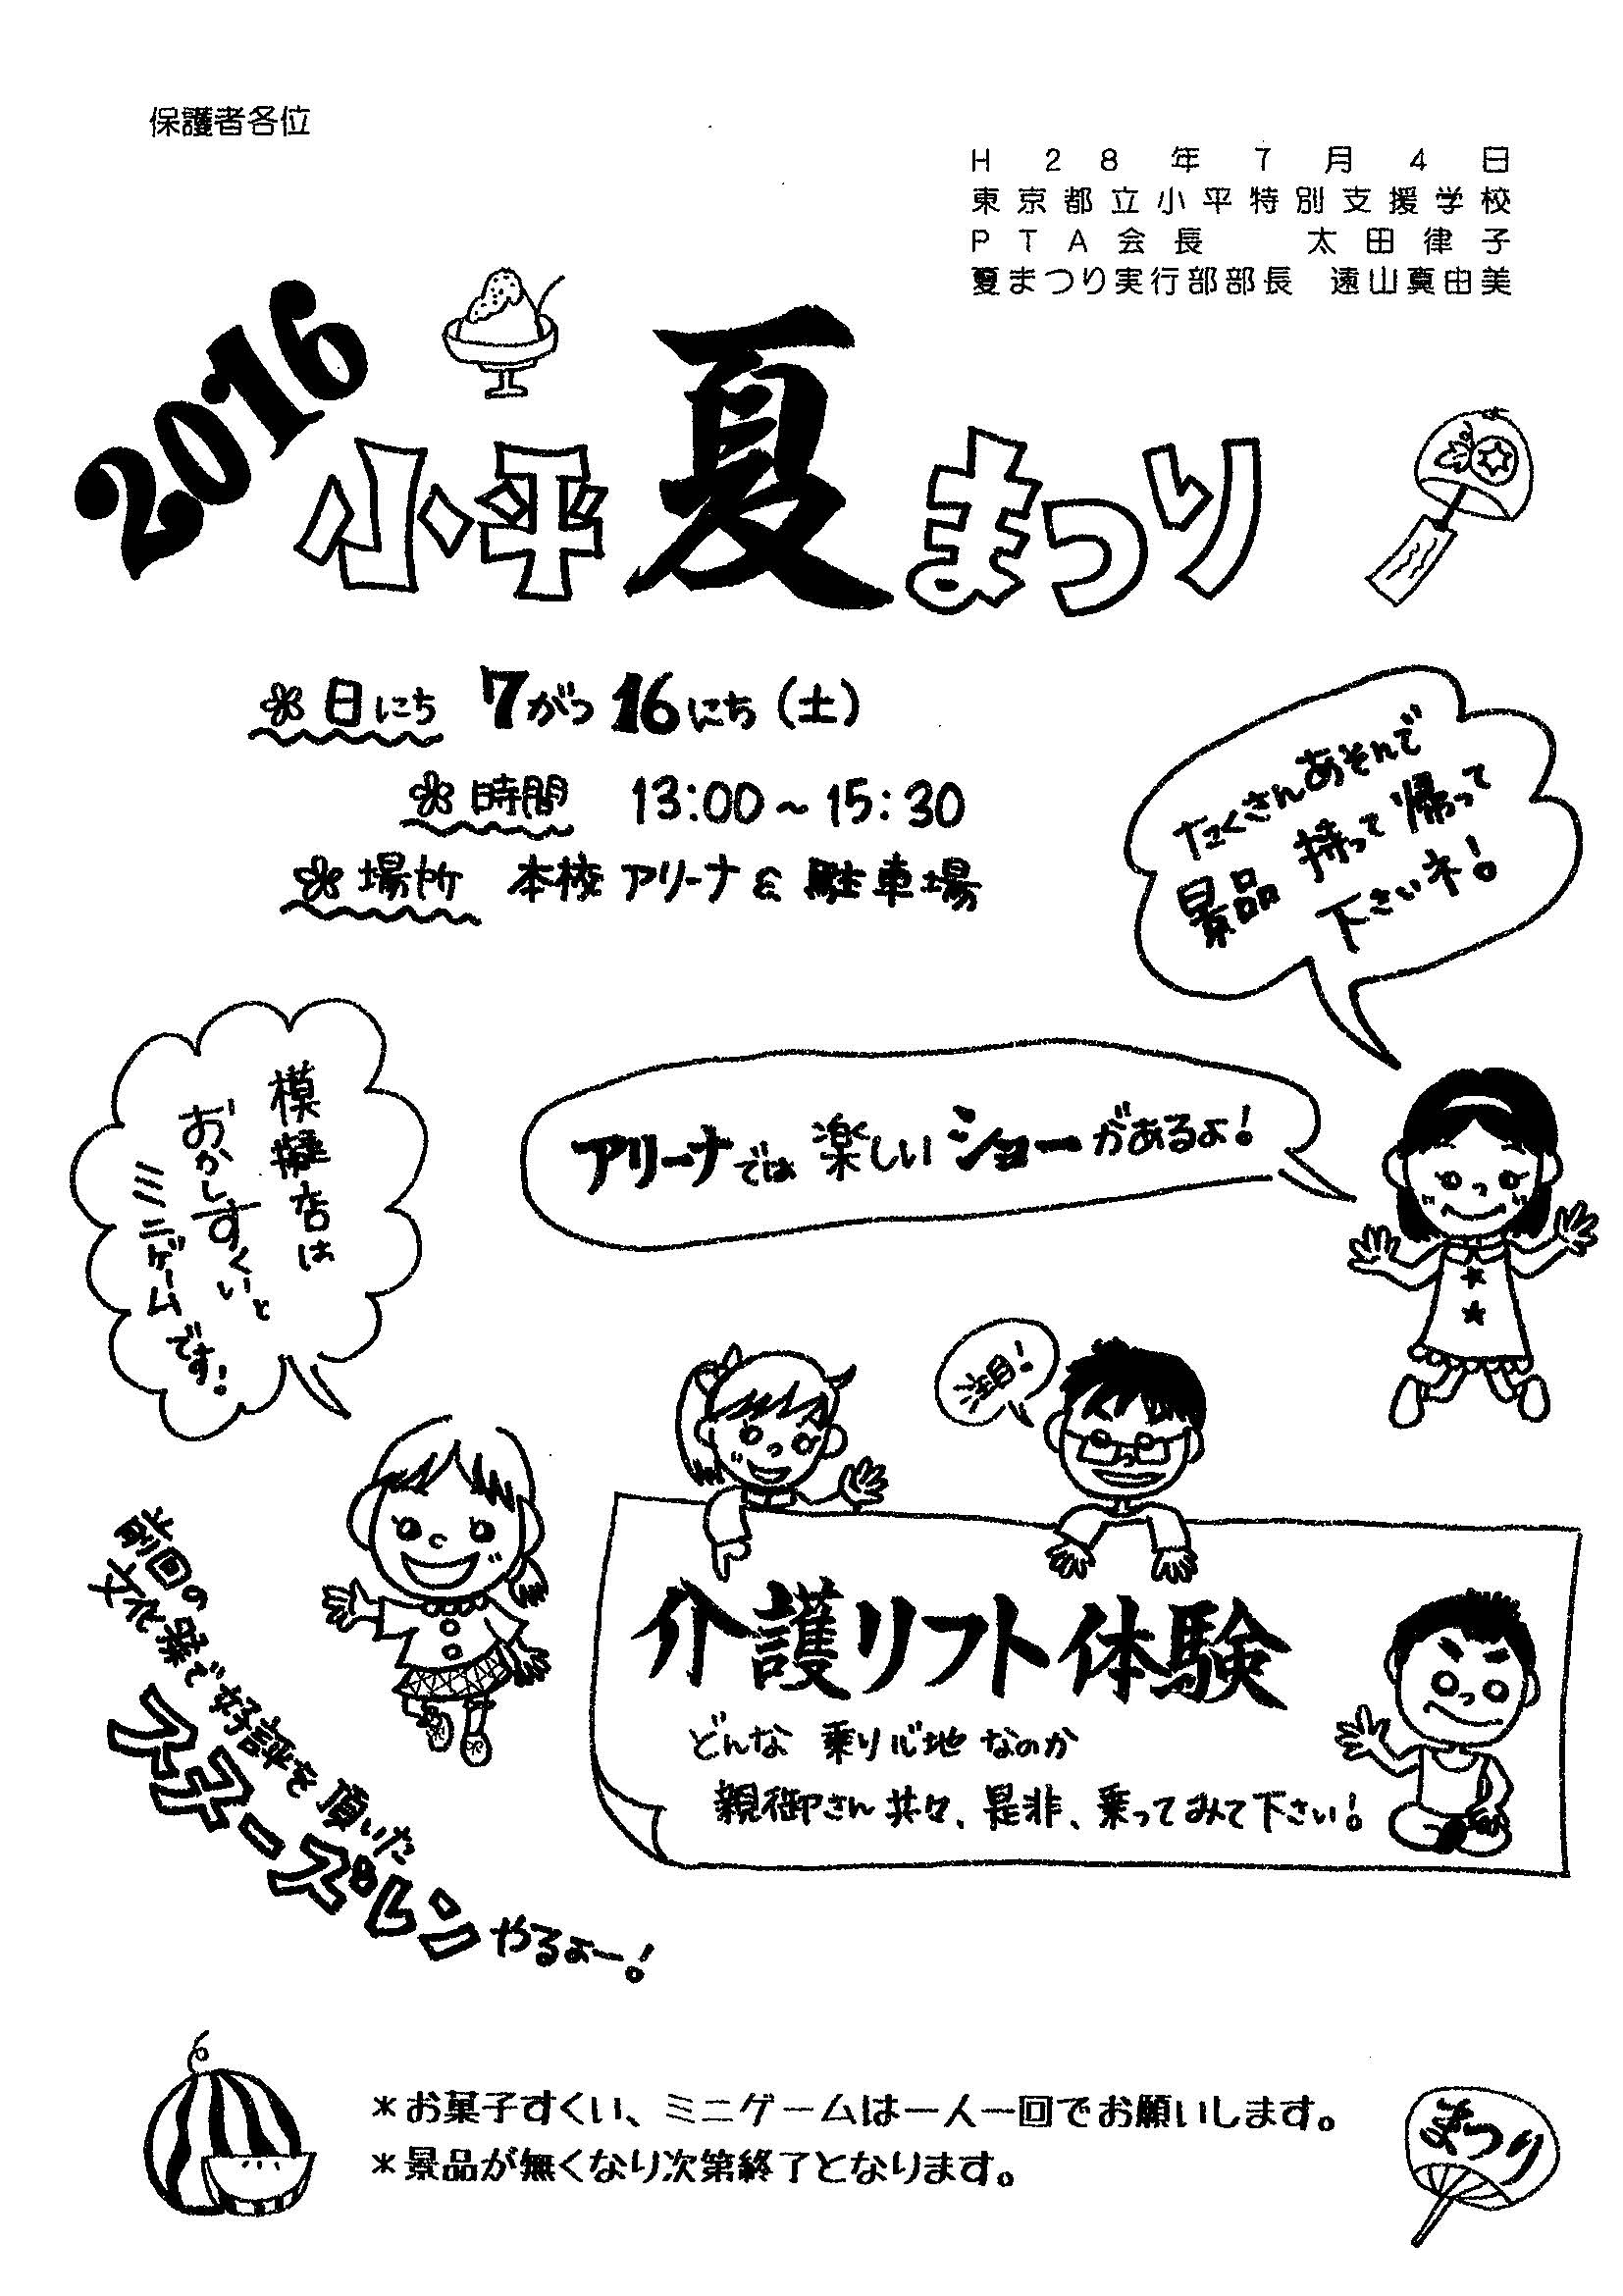 保護者各位
H28年7月4日
東京都立小平特別支援学校
PTA会長 太田律子
夏まつり実行部部長 遠山真由美
2016
小平夏まつり
日にち 7がつ16にち(土)
時間 13:00~15:30
場所 本校アリーナ&駐車場
たくさんあそんで
景品持って帰って
下さいネ!
アリーナでは楽しいショーがあるよ!
模擬店は
おかしすくいと
ミニゲームです!
注目!
介護リフト体験
どんな乗り心地なのか
親御さん共々、是非、乗ってみて下さい!
前回の
文化祭で好評を頂いた
スヌーズレンやるよー!
*お菓子すくい、ミニゲームは一人一回でお願いします。
*景品が無くなり次第終了となります。
まつり